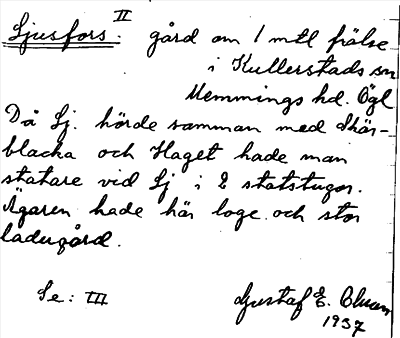 Ljusfors. II gård om 1 mtl frälse
i Kullerstads sn
Memmings hd. Ögl
Då Lj. hörde samman med Skär-
blacka och Haget hade man
statare vid Lj i 2 statstugor.
Ägaren hade här loge och stor
ladugård.
Se: III
Gustaf E.
1937